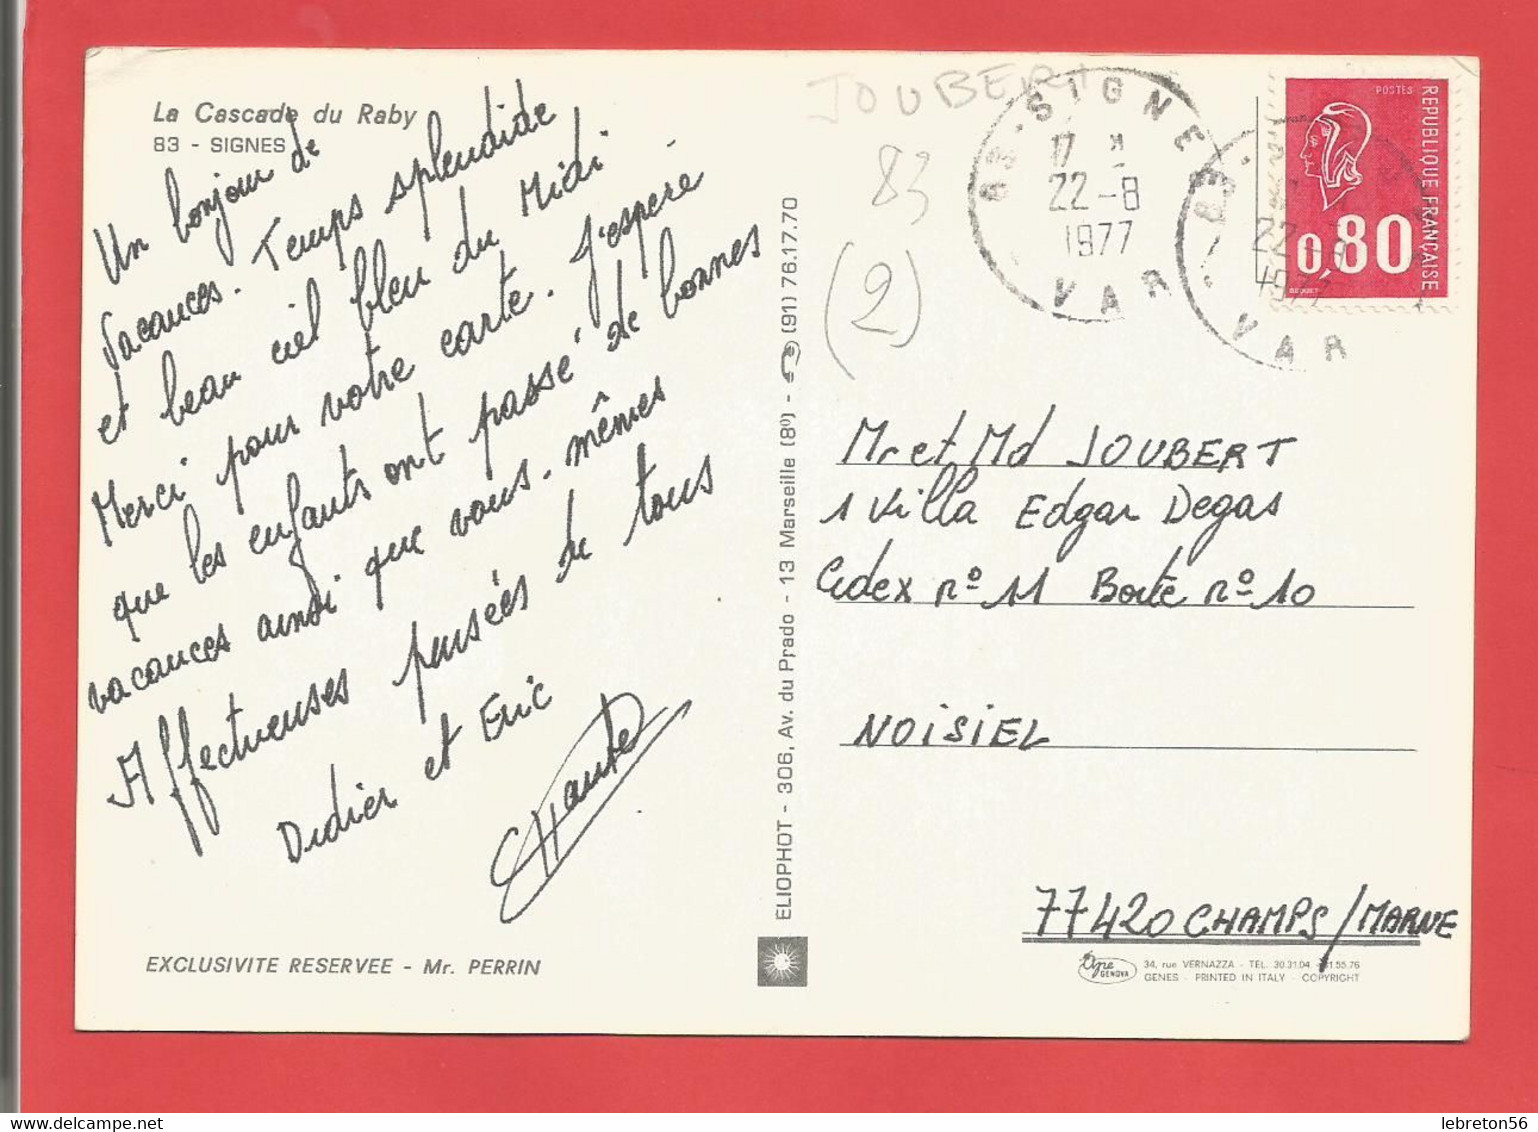 La Cascade du Raby
83 - SIGNES
Un bonjour de
vacances. Temps splendide
et beau ciel bleu du Midi
Merci pour votre carte. J'espère
que les enfants ont passé de bonnes
vacances ainsi que vous-mêmes
Affectueuses pensées de tous
Didier et Eric
EXCLUSIVITE RESERVEE - Mr. PERRIN
ELIOPHOT - 306, Av. du Prado - 13 Marseille (8º) - (91) 76.17.70
JOUBERT
83
(2)
83 - SIGNES
17 H
22-8
1977
VAR
22-8
1977
VAR
POSTES
REPUBLIQUE FRANÇAISE
0,80
Mr et Md JOUBERT
1 Villa Edgar Degas
Cedex nº 11 Boite nº 10
NOISIEL
77420 CHAMPS/MARNE
GENOVA
34, rue VERNAZZA - TEL. 30.31.04
GENES - PRINTED IN ITALY - COPYRIGHT
lebreton56